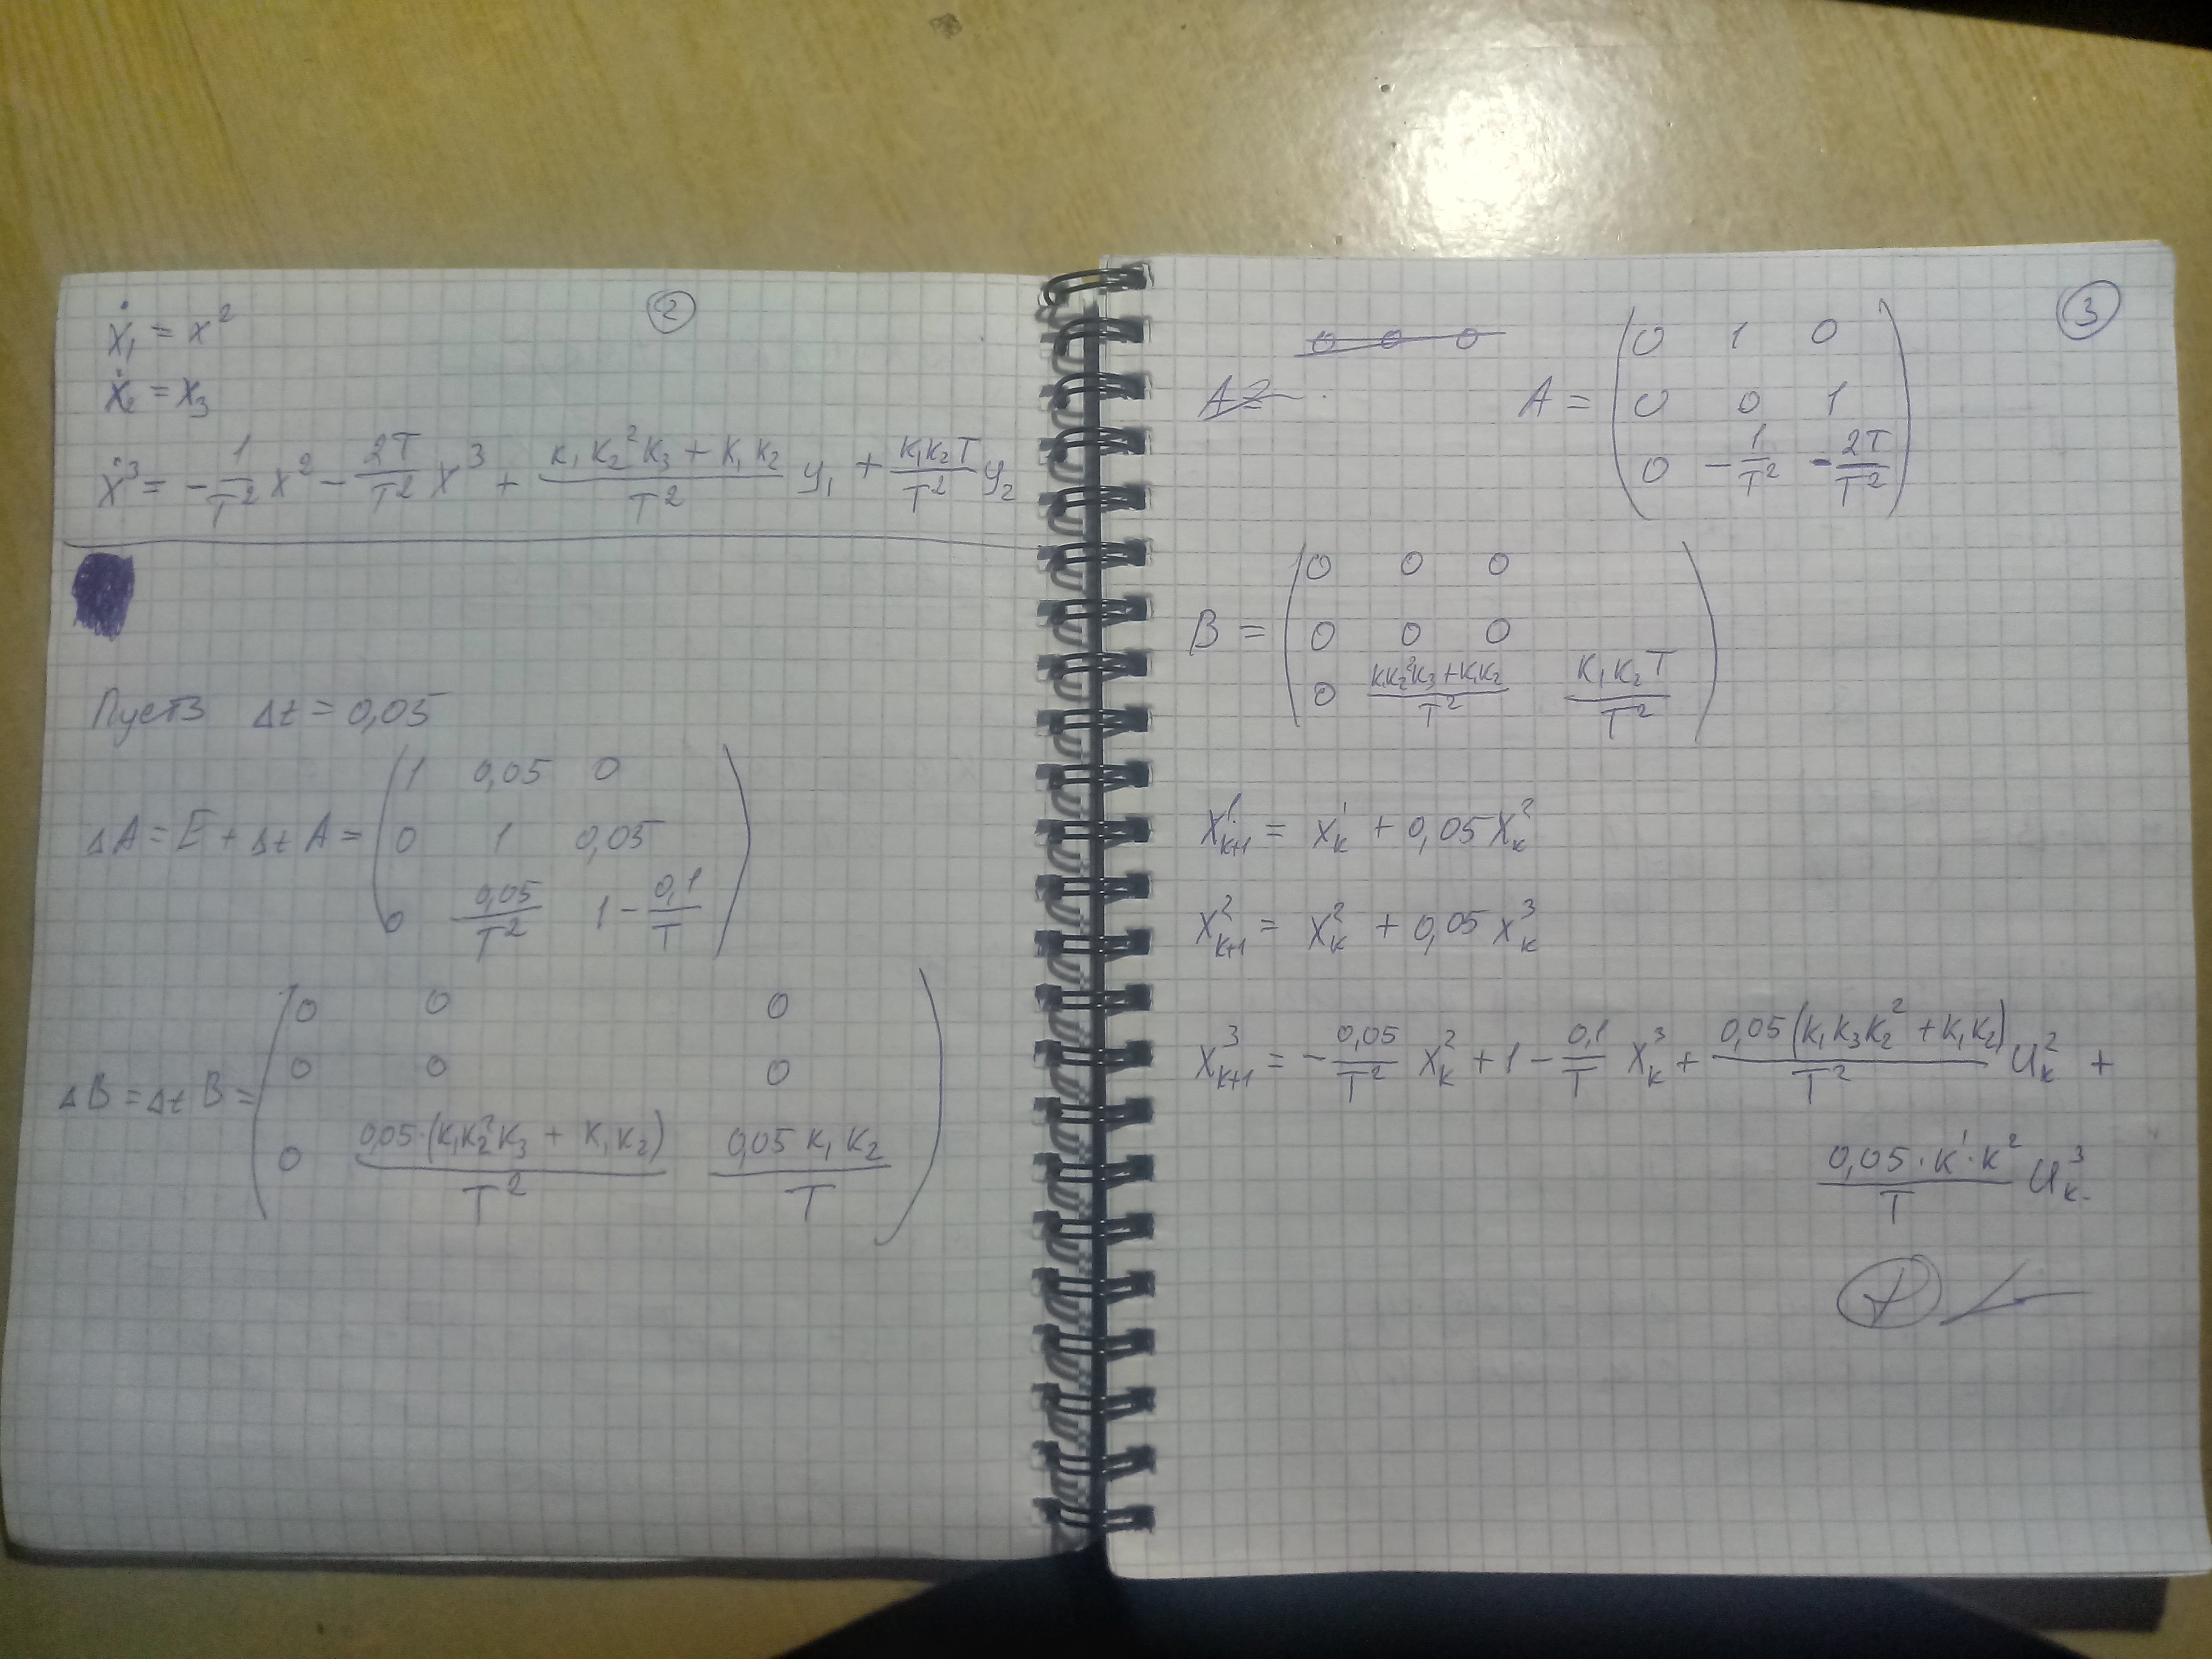 ②
ẋ₁ = x²
ẋ₂ = x₃
ẋ³ = -1/T² x² - 2T/T² x³ + (K₁K₂²K₃ + K₁K₂)/T² y₁ + K₁K₂T/T² y₂
Пусть Δt = 0,05
1 0,05 0
ΔA = E + Δt A = 0 1 0,05
0 0,05/T² 1 - 0,1/T
0 0 0
0 0 0
ΔB = Δt B =
0 0,05·(K₁K₂²K₃ + K₁K₂)/T² 0,05 K₁K₂/T
③
0 0 0
0 1 0
A =
A = 0 0 1
0 -1/T² -2T/T²
0 0 0
B = 0 0 0
0 (K₁K₂²K₃ + K₁K₂)/T² K₁K₂T/T²
X¹ₖ₊₁ = X¹ₖ + 0,05X²ₖ
X²ₖ₊₁ = X²ₖ + 0,05X³ₖ
X³ₖ₊₁ = -0,05/T² X²ₖ + 1 - 0,1/T X³ₖ + 0,05(K₁K₃K₂² + K₁K₂)/T² U²ₖ +
0,05·K¹·K²/T U³ₖ